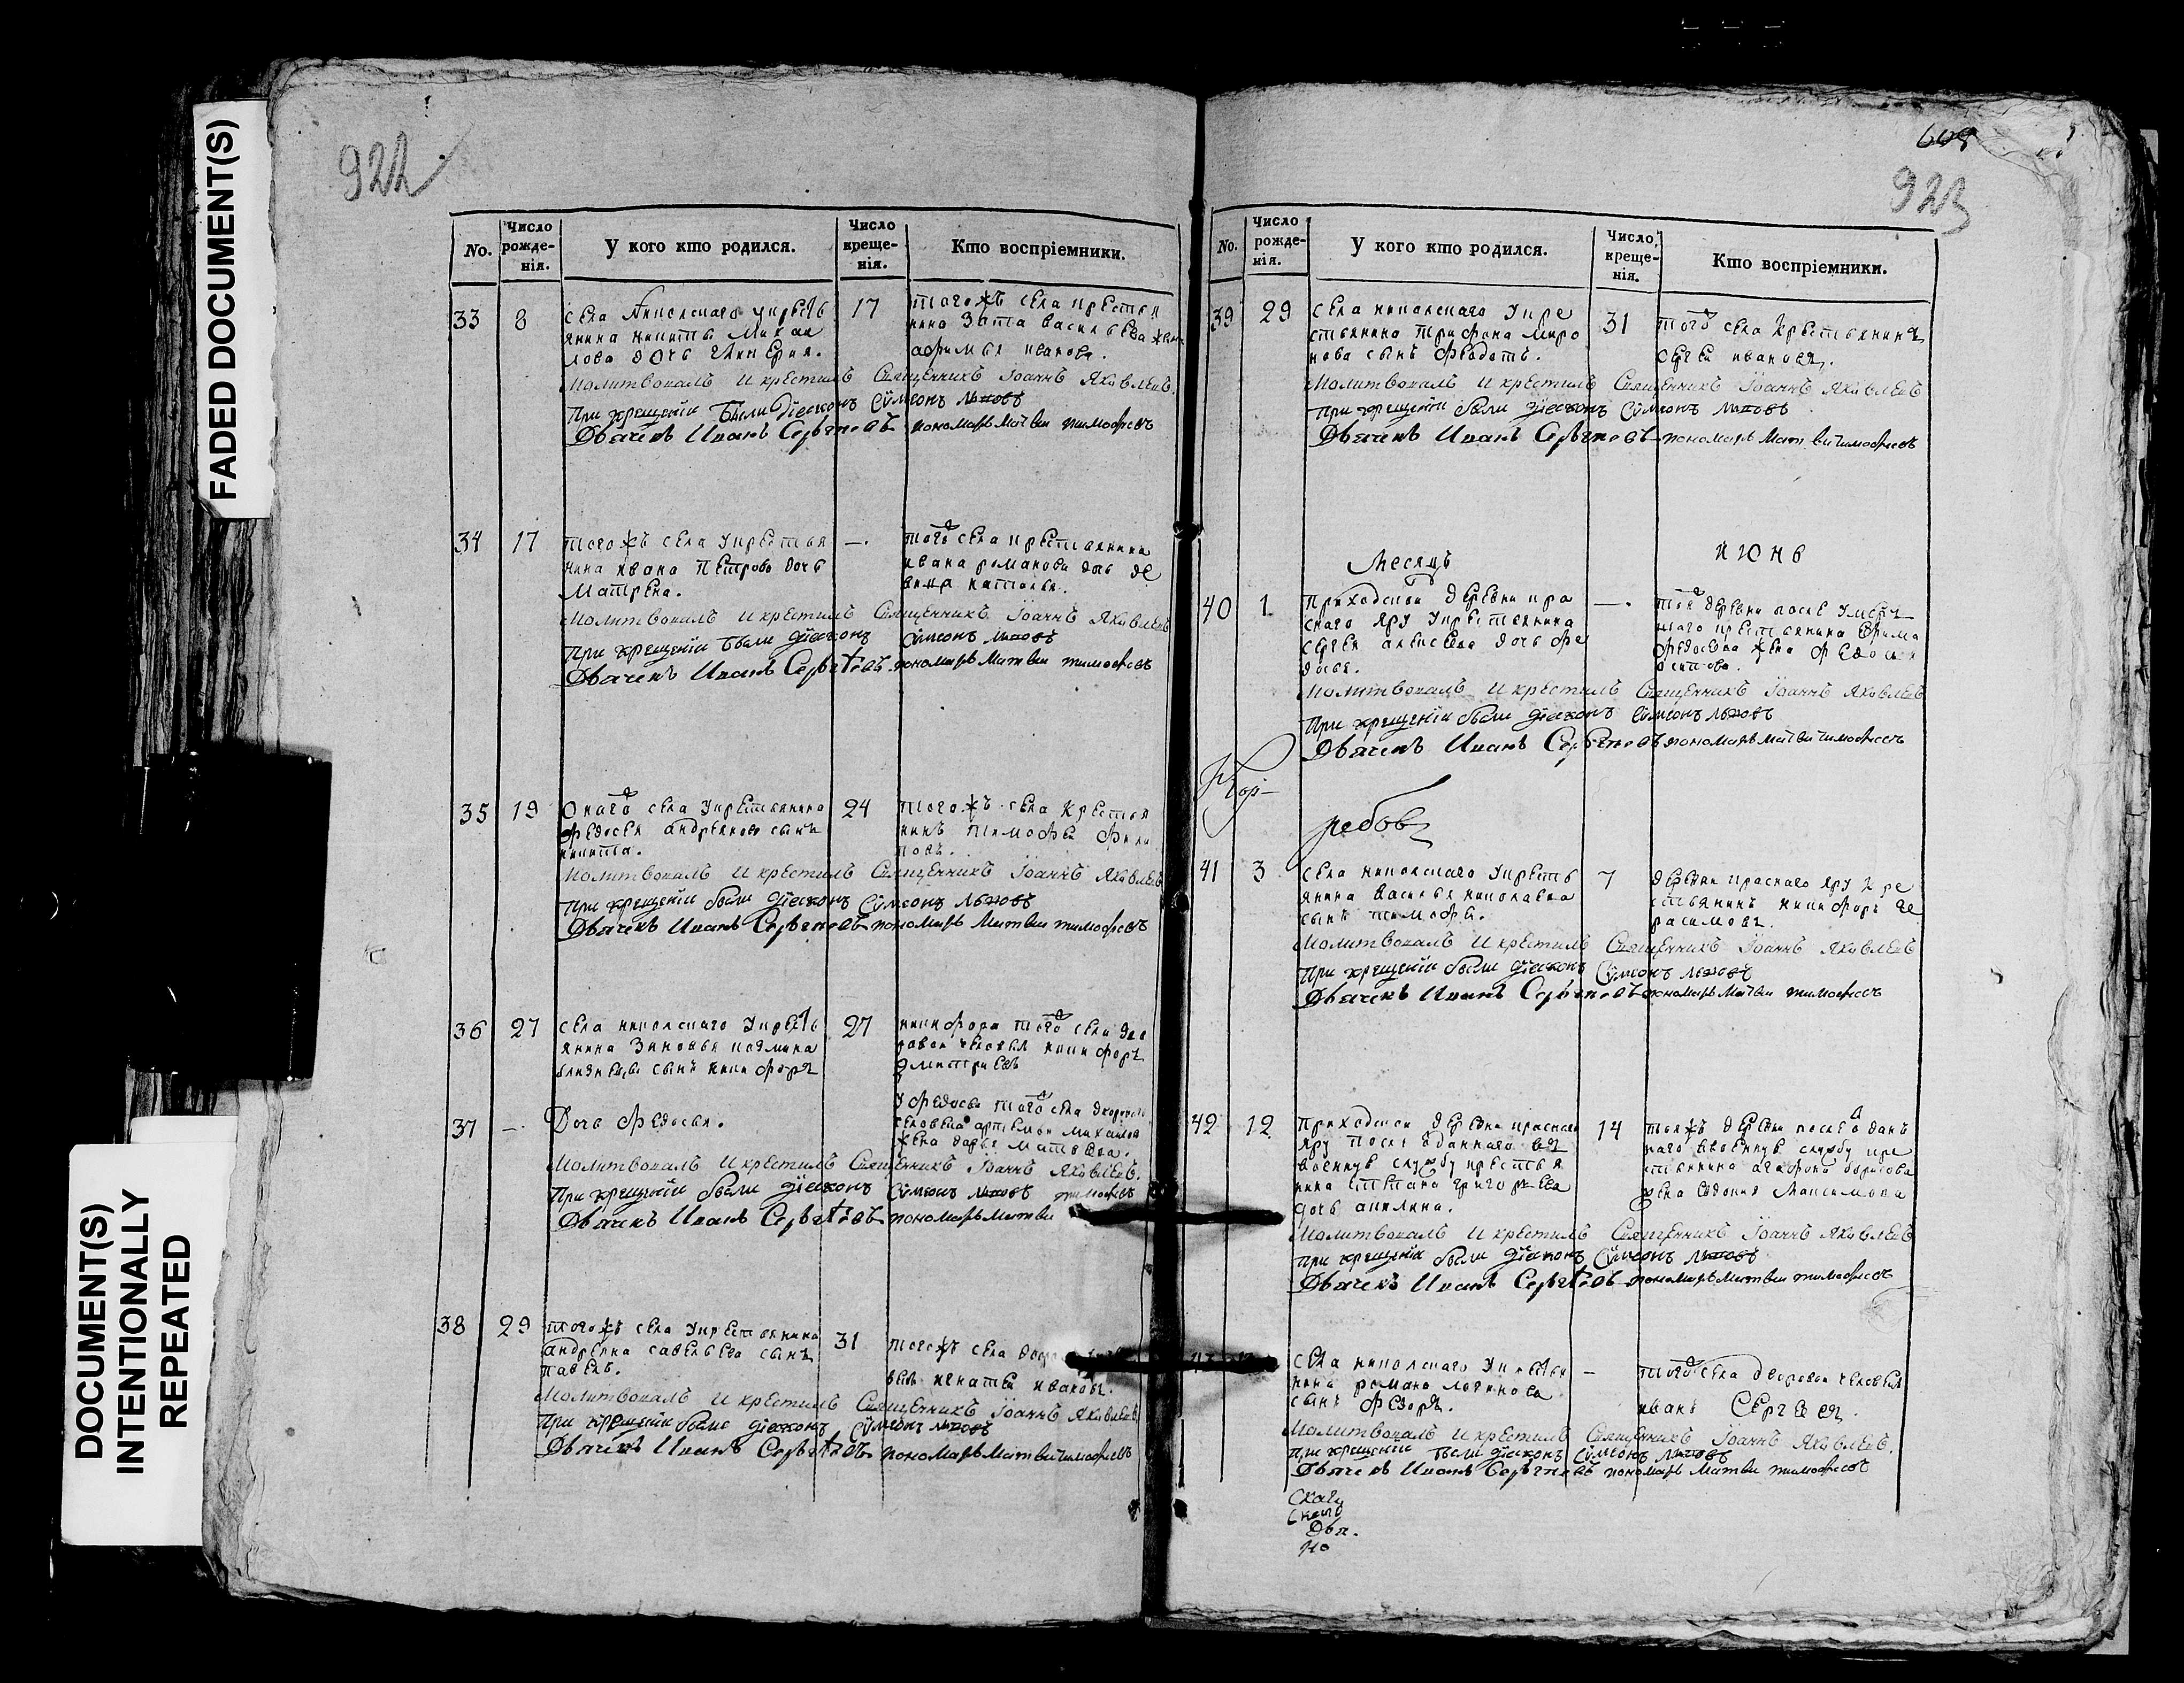 FADED DOCUMENT(S)
DOCUMENT(S)
INTENTIONALLY
REPEATED
922
No.
Число рожде-нія.
У кого кто родился.
Число креще-нія.
Кто воспріемники.
33 8 17
села укрестъ
янина никиты Михаи
лова дочь гликерия.
тогожъ села крестья
нина Зота васильева жена
афимья иванова.
Молитвовалъ и крестилъ Священникъ Іоаннъ Яковлевъ.
При крещеніи были діаконъ Сѵмеонъ
Дьячекъ Иванъ Сергѣевъ пономарь Матвеи тимофеевъ
34 17 —.
тогожъ села укрестья
нина ивана Петрова дочь
Матрена.
того села крестьянина
ивана романова дочь де
вица наталья.
Молитвовалъ и крестилъ Священникъ Іоаннъ Яковлевъ
При крещеніи были діаконъ Сѵмеонъ
Дьячекъ Иванъ Сергѣевъ пономарь Матвеи тимофеевъ
35 19 24
Онаго села укрестьянина
федосея андреянова сынъ
никита.
тогожъ села Крестья
нинъ тимофеи фили
повъ.
Молитвовалъ и крестилъ Священникъ Іоаннъ Яковлевъ
При крещеніи были діаконъ Сѵмеонъ
Дьячекъ Иванъ Сергѣевъ пономарь Матвеи тимофеевъ
36 27 27
села никольскаго укресть
янина Зиновья козмина
близнецы сынъ никифоръ
никифора того села дво
ровои человекъ никифоръ
дмитриевъ
37 —.
Дочь федосья.
у федосьи того села двороваго
человека артемья михаилова
жена дарья матвеева.
Молитвовалъ и крестилъ Священникъ Іоаннъ Яковлевъ.
При крещеніи были діаконъ Сѵмеонъ тимофеевъ
Дьячекъ Иванъ Сергѣевъ пономарь Матвеи
38 29 31
тогожъ села укрестьянина
андреяна савельева сынъ
павелъ.
тогожъ села
векъ игнатеи ивановъ.
Молитвовалъ и крестилъ Священникъ Іоаннъ Яковлевъ
При крещеніи были діаконъ Сѵмеонъ
Дьячекъ Иванъ Сергѣевъ пономарь Матвеи тимофеевъ
923
No.
Число рожде-нія.
У кого кто родился.
Число креще-нія.
Кто воспріемники.
39 29 31
села никольскаго укре
стьянина трифона миро
нова сынъ федотъ.
того села Крестьянинъ
сергеи ивановъ.
Молитвовалъ и крестилъ Священникъ Іоаннъ Яковлевъ
При крещеніи были діаконъ Сѵмеонъ
Дьячекъ Иванъ Сергѣевъ пономарь Матвеи тимофеевъ
Месяцъ июнь
40 1 —.
Приходскои деревни кра
снаго яру укрестьянина
сергея алексеева дочь фе
досья.
тои деревни после умерш
шаго крестьянина ефима
федосеева жена федосья
осипова.
Молитвовалъ и крестилъ Священникъ Іоаннъ Яковлевъ
При крещеніи были діаконъ Сѵмеонъ
Дьячекъ Иванъ Сергѣевъ пономарь Матвеи тимофеевъ
41 3 7
села никольскаго укресть
янина василья николаева
сынъ тимофеи.
деревни краснаго яру кре
стьянинъ никифоръ ге
расимовъ.
Молитвовалъ и крестилъ Священникъ Іоаннъ Яковлевъ
При крещеніи были діаконъ Сѵмеонъ
Дьячекъ Иванъ Сергѣевъ пономарь Матвеи тимофеевъ
42 12 14
Приходскои деревни краснаго
яру после отданнаго въ
военную службу крестья
нина степана григорьева
дочь акилина.
тояжъ деревни после отдан
наго ввоенную службу кре
стьянина агафона борисова
жена евдокия Максимова
Молитвовалъ и крестилъ Священникъ Іоаннъ Яковлевъ
При крещеніи были діаконъ Сѵмеонъ
Дьячекъ Иванъ Сергѣевъ пономарь Матвеи тимофеевъ
—
села никольскаго укрестья
нина романа логинова
сынъ федоръ.
того села дворовои человекъ
иванъ Сергеевъ.
Молитвовалъ и крестилъ Священникъ Іоаннъ Яковлевъ.
При крещеніи были діаконъ Сѵмеонъ
Дьячекъ Иванъ Сергѣевъ пономарь Матвеи тимофеевъ